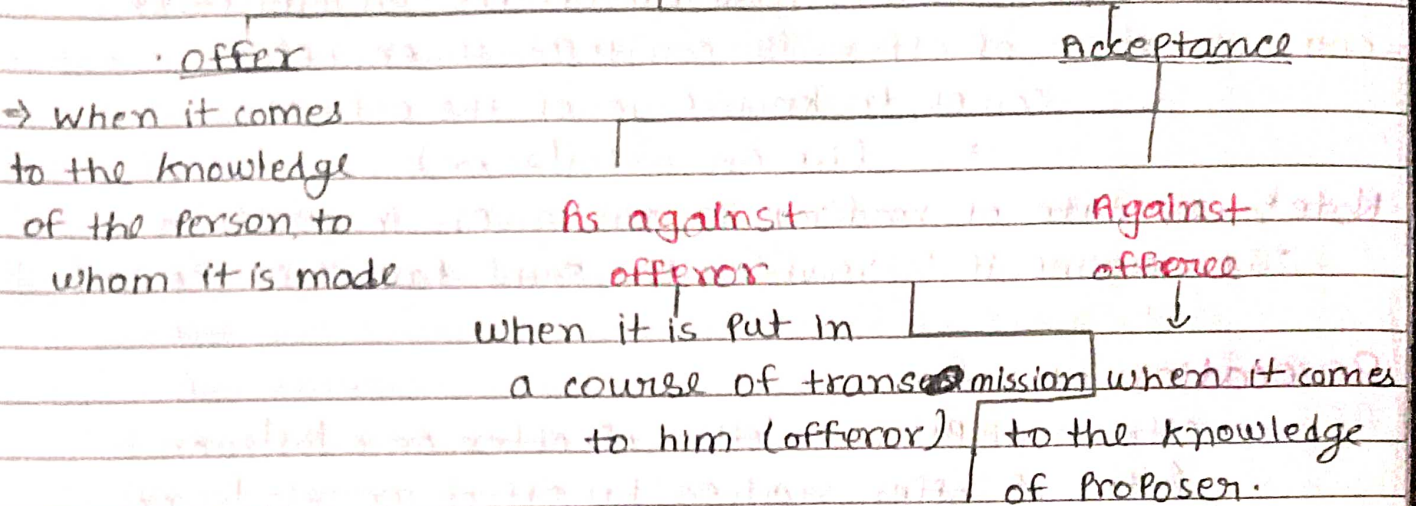 offer
Ackeptance
⇒ When it comes
to the knowledge
of the Person to
whom it is made
As against
offeror
when it is Put in
a course of transmission
to him (offeror)
Against
offeree
when it comes
to the knowledge
of Proposer.